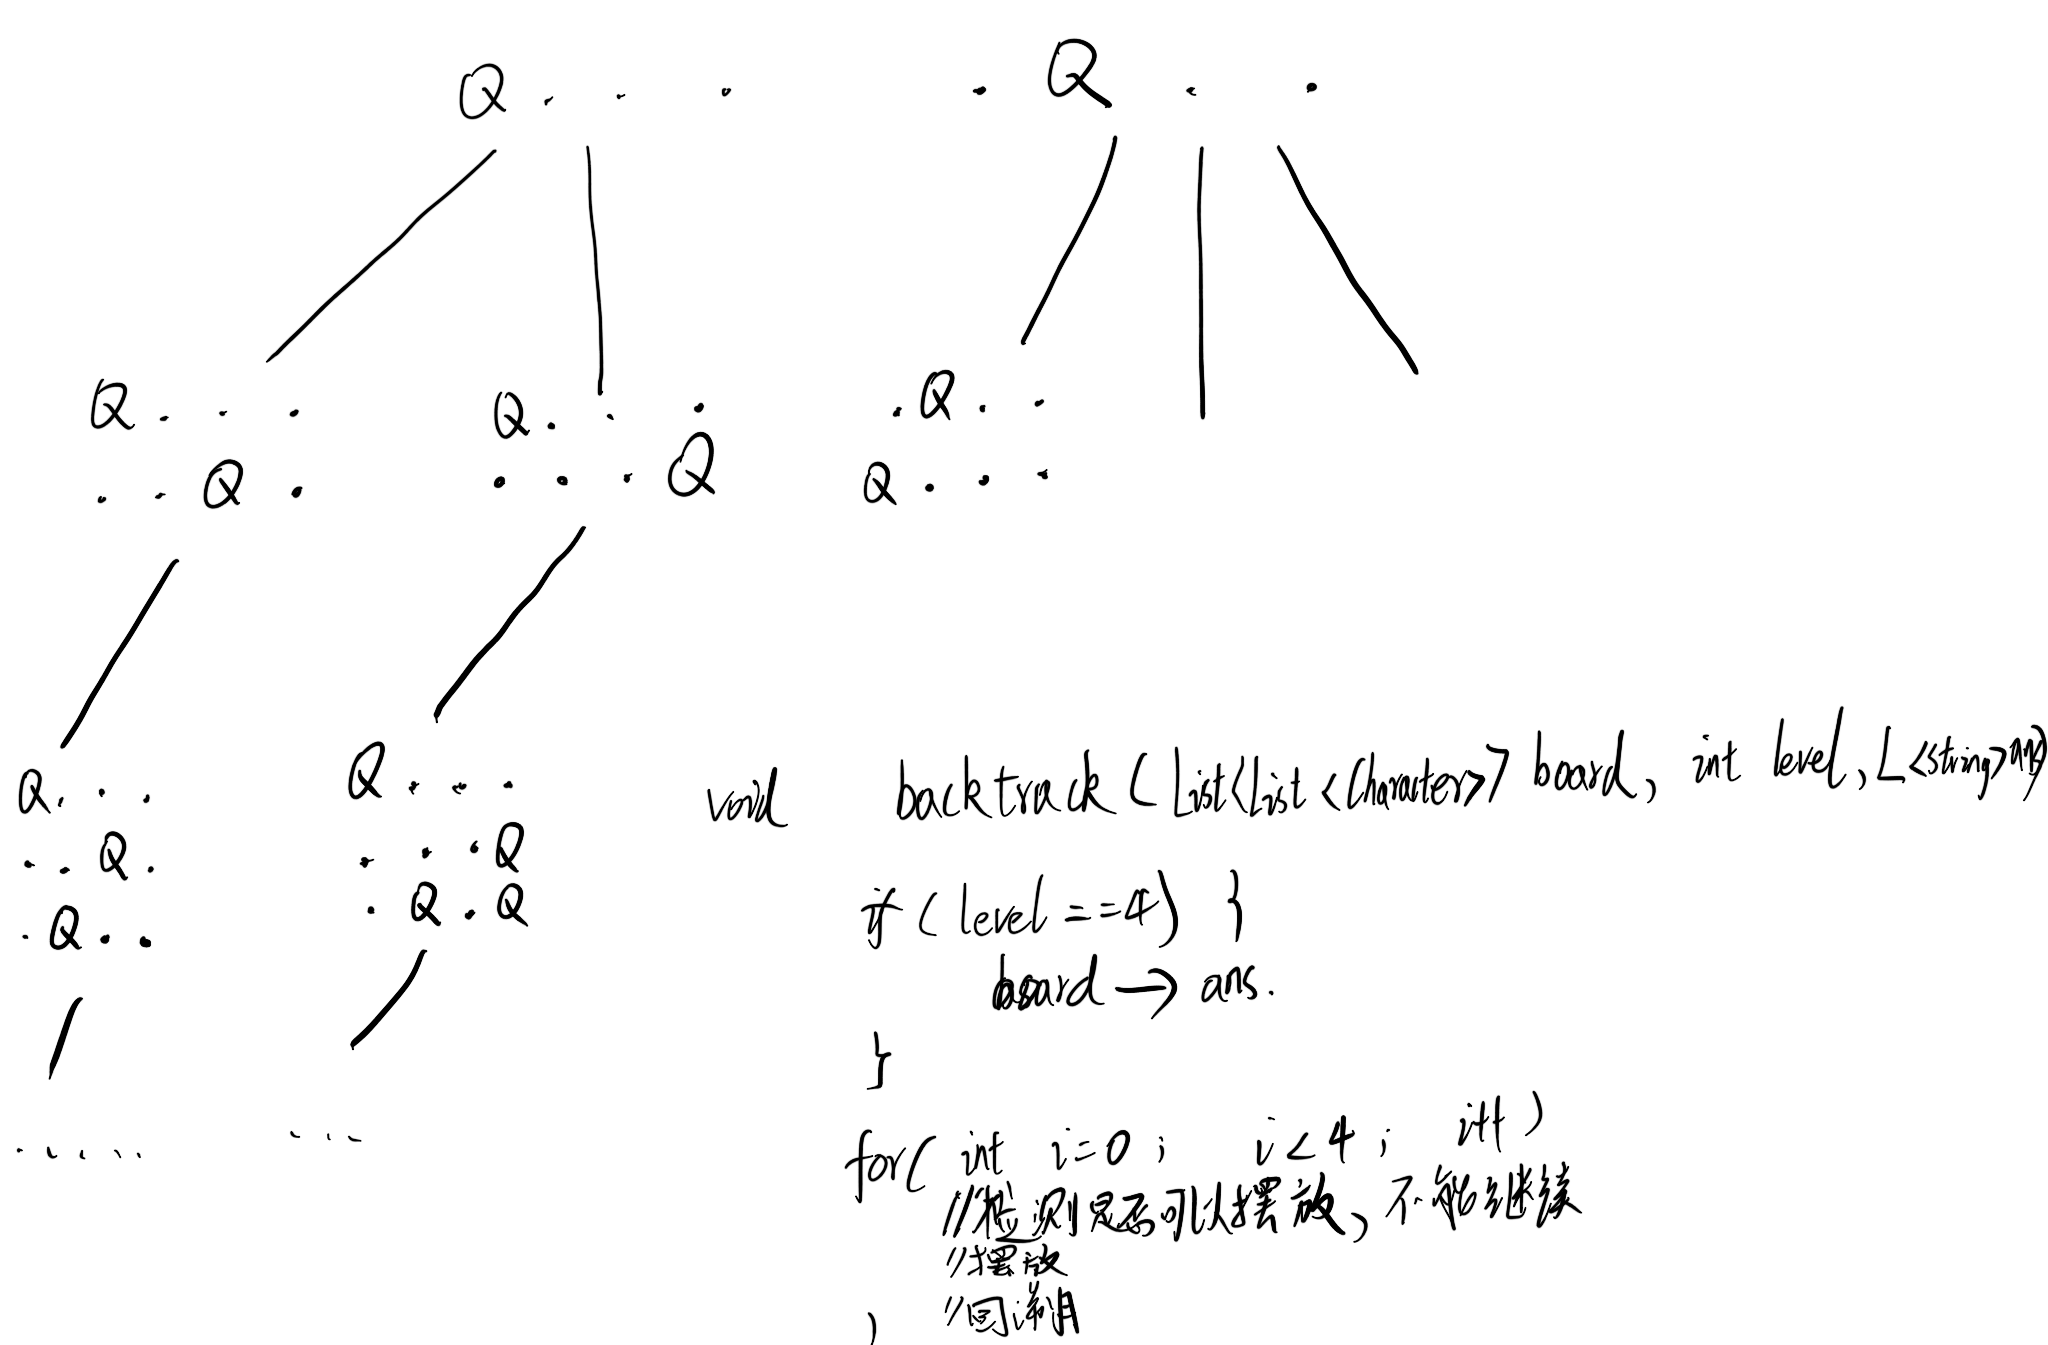 Q . . .
. Q . .
Q . . .
. . Q .
Q . . .
. . . Q
. Q . .
Q . . .
Q . . .
. . Q .
. Q . .
Q . . .
. . . Q
. Q . Q
. . . . .
. . .
void backtrack (List<List <Character>> board, int level, L<string>ans)
if ( level ==4) }
board → ans.
}
for( int i=0 ; i<4 ; i++ )
//检测是否可以摆放, 不能继续
//摆放
//回溯
)